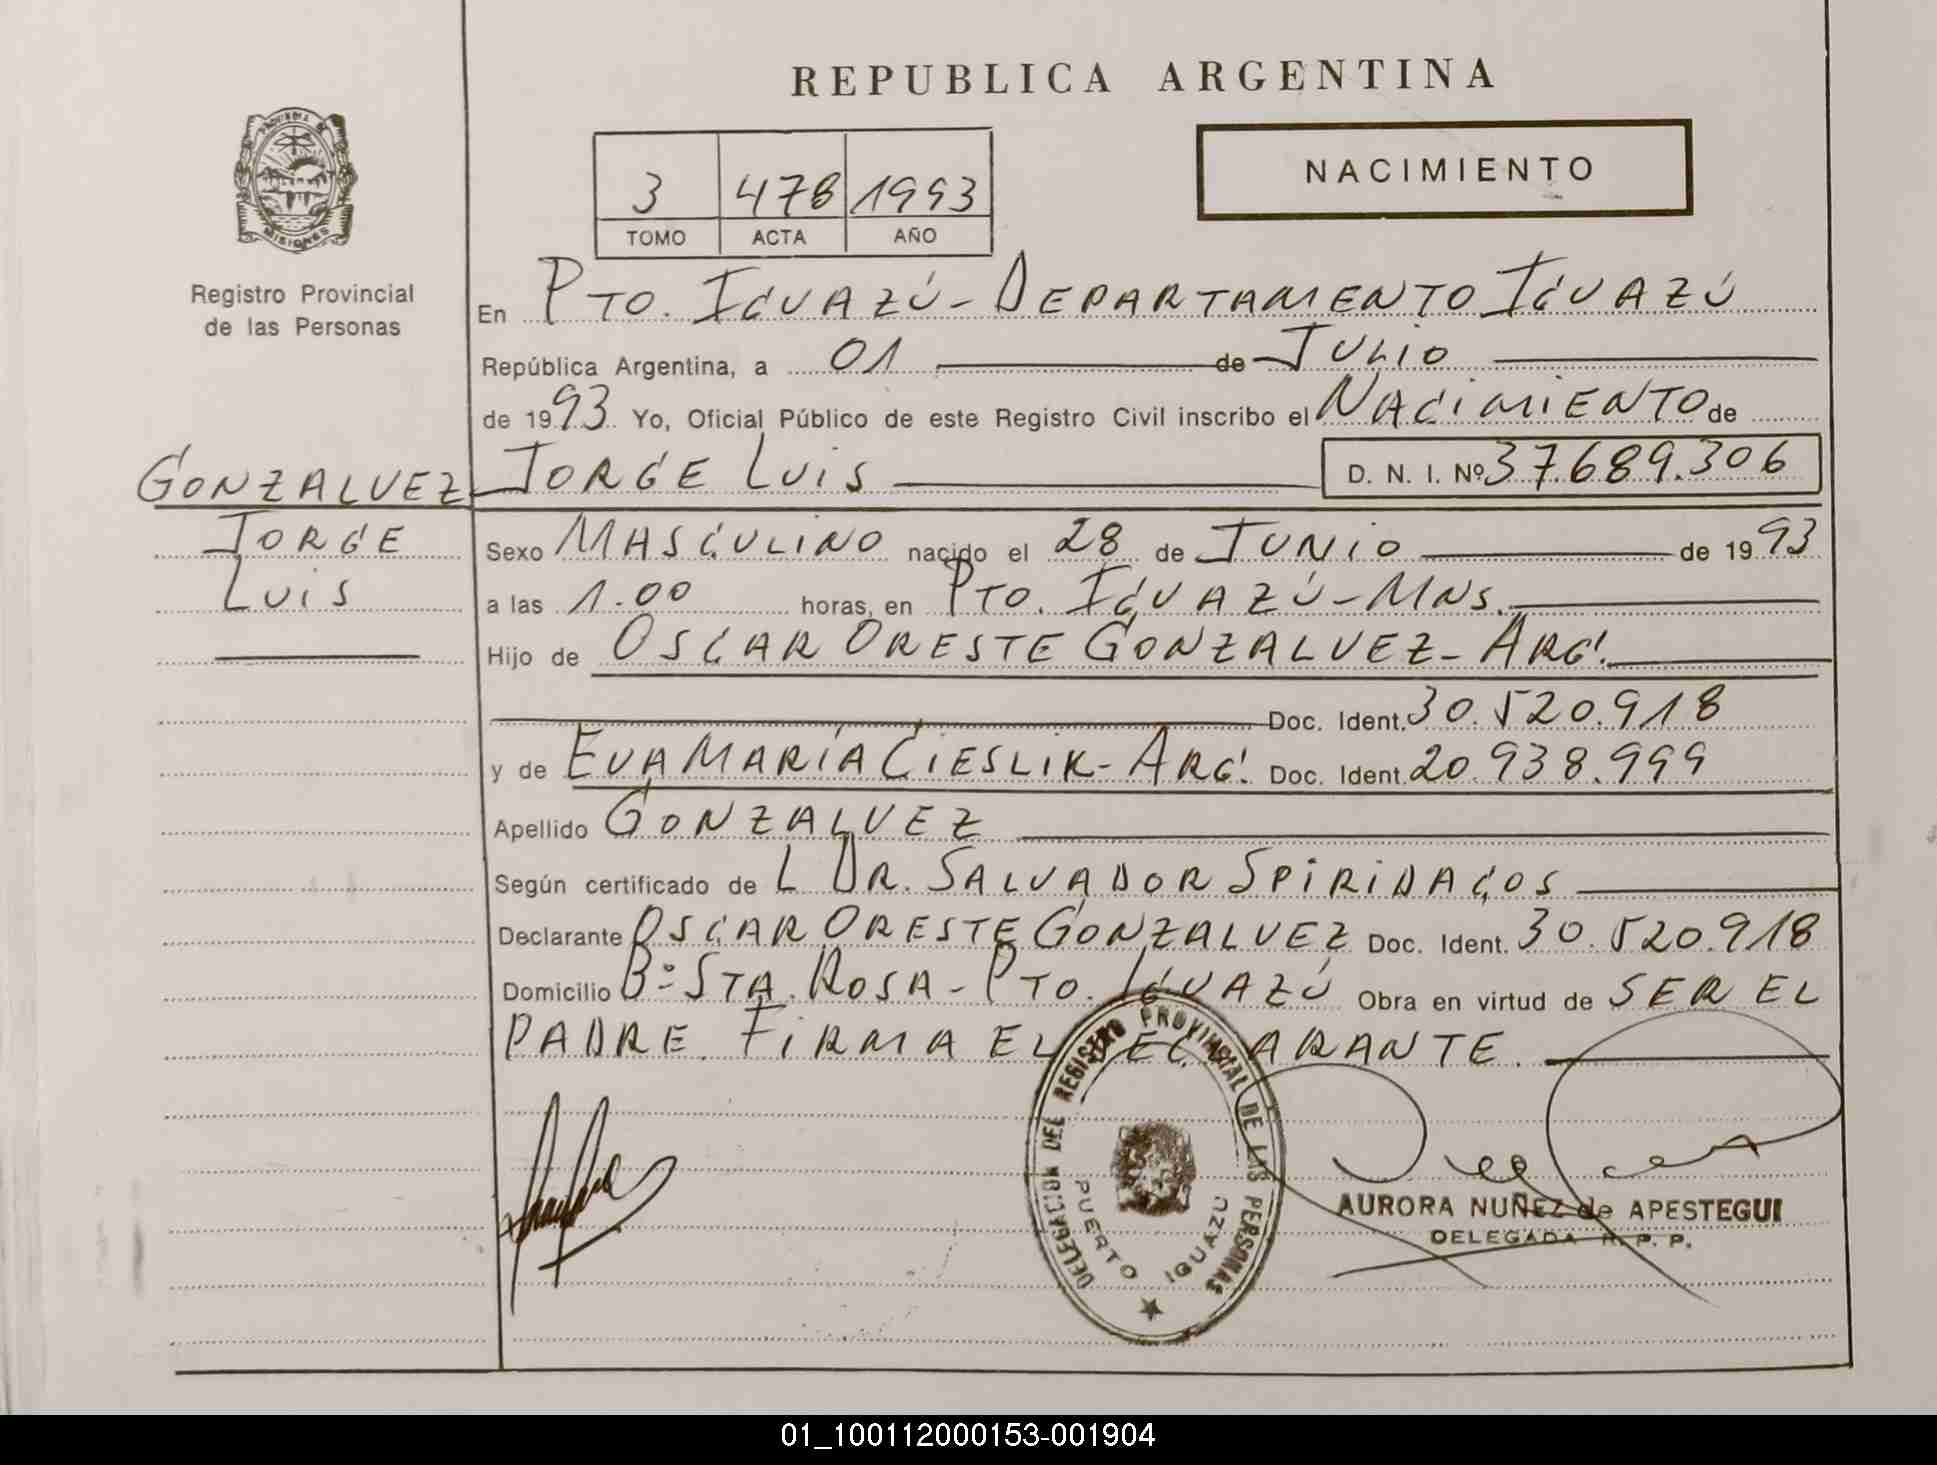 REPUBLICA ARGENTINA
PROVINCIA DE
MISIONES
Registro Provincial
de las Personas
NACIMIENTO
3 478 1993
TOMO ACTA AÑO
En PTO. IGUAZÚ - DEPARTAMENTO IGUAZÚ
República Argentina, a 01 de JULIO
de 1993 Yo, Oficial Público de este Registro Civil inscribo el NACIMIENTO de
GONZALVEZ JORGE LUIS D. N. I. Nº 37.689.306
JORGE
LUIS
Sexo MASCULINO nacido el 28 de JUNIO de 1993
a las 1.00 horas, en PTO. IGUAZÚ - MNS.
Hijo de OSCAR ORESTE GONZALVEZ - ARG.
Doc. Ident. 30.520.918
y de EVA MARÍA CIESLIK - ARG. Doc. Ident. 20.938.999
Apellido GONZALVEZ
Según certificado de L DR. SALVADOR SPIRIDAGOS
Declarante OSCAR ORESTE GONZALVEZ Doc. Ident. 30.520.918
Domicilio Bº STA. ROSA - PTO. IGUAZÚ Obra en virtud de SER EL
PADRE. FIRMA EL DECLARANTE.
DELEGACION DEL REGISTRO PROVINCIAL DE LAS PERSONAS
PUERTO IGUAZU
AURORA NUÑEZ de APESTEGUI
DELEGADA R. P. P.
01_100112000153-001904